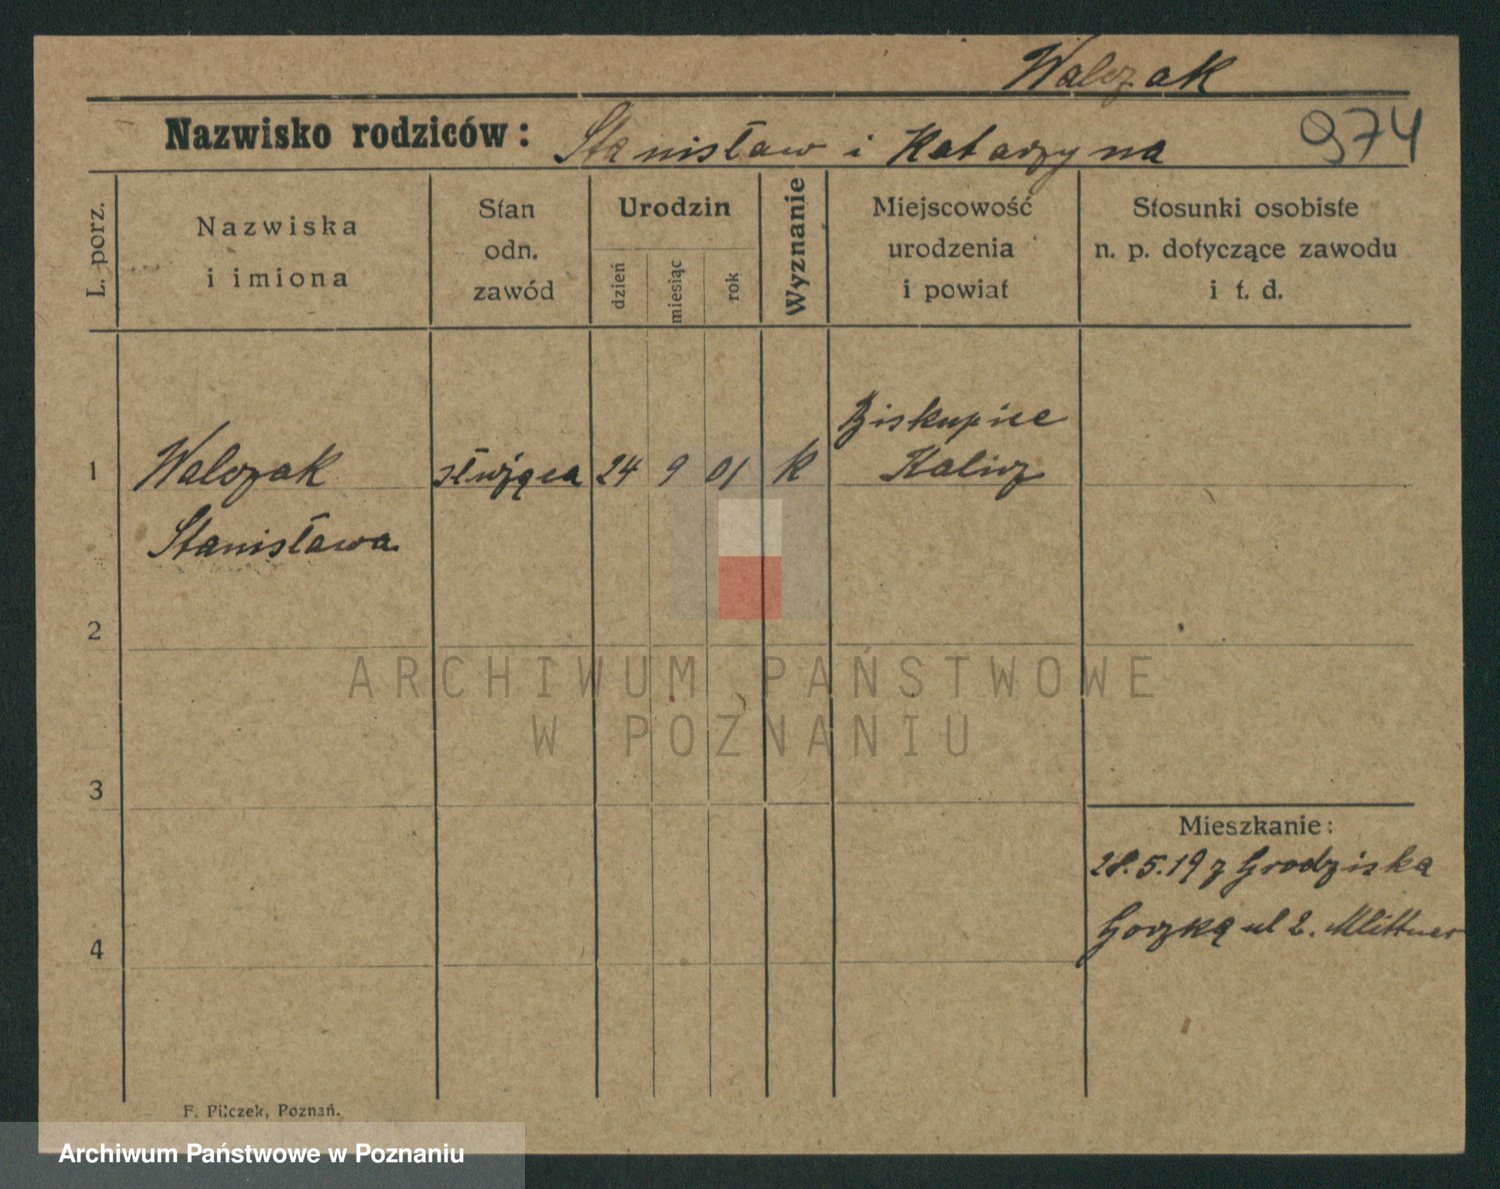 Walczak
Nazwisko rodziców: Stanisław i Katarzyna 974
L. porz.
Nazwiska
i imiona
Stan
odn.
zawód
Urodzin
dzień
miesiąc
rok
Wyznanie
Miejscowość
urodzenia
i powiat
Stosunki osobiste
n. p. dotyczące zawodu
i t. d.
Biskupice
1 Walczak służąca 24 9 01 k Kalisz
Stanisława
2
ARCHIWUM PAŃSTWOWE
W POZNANIU
3
Mieszkanie:
28.5.19 z Grodziska
ul 2.
4
F. Pilczek, Poznań.
Archiwum Państwowe w Poznaniu